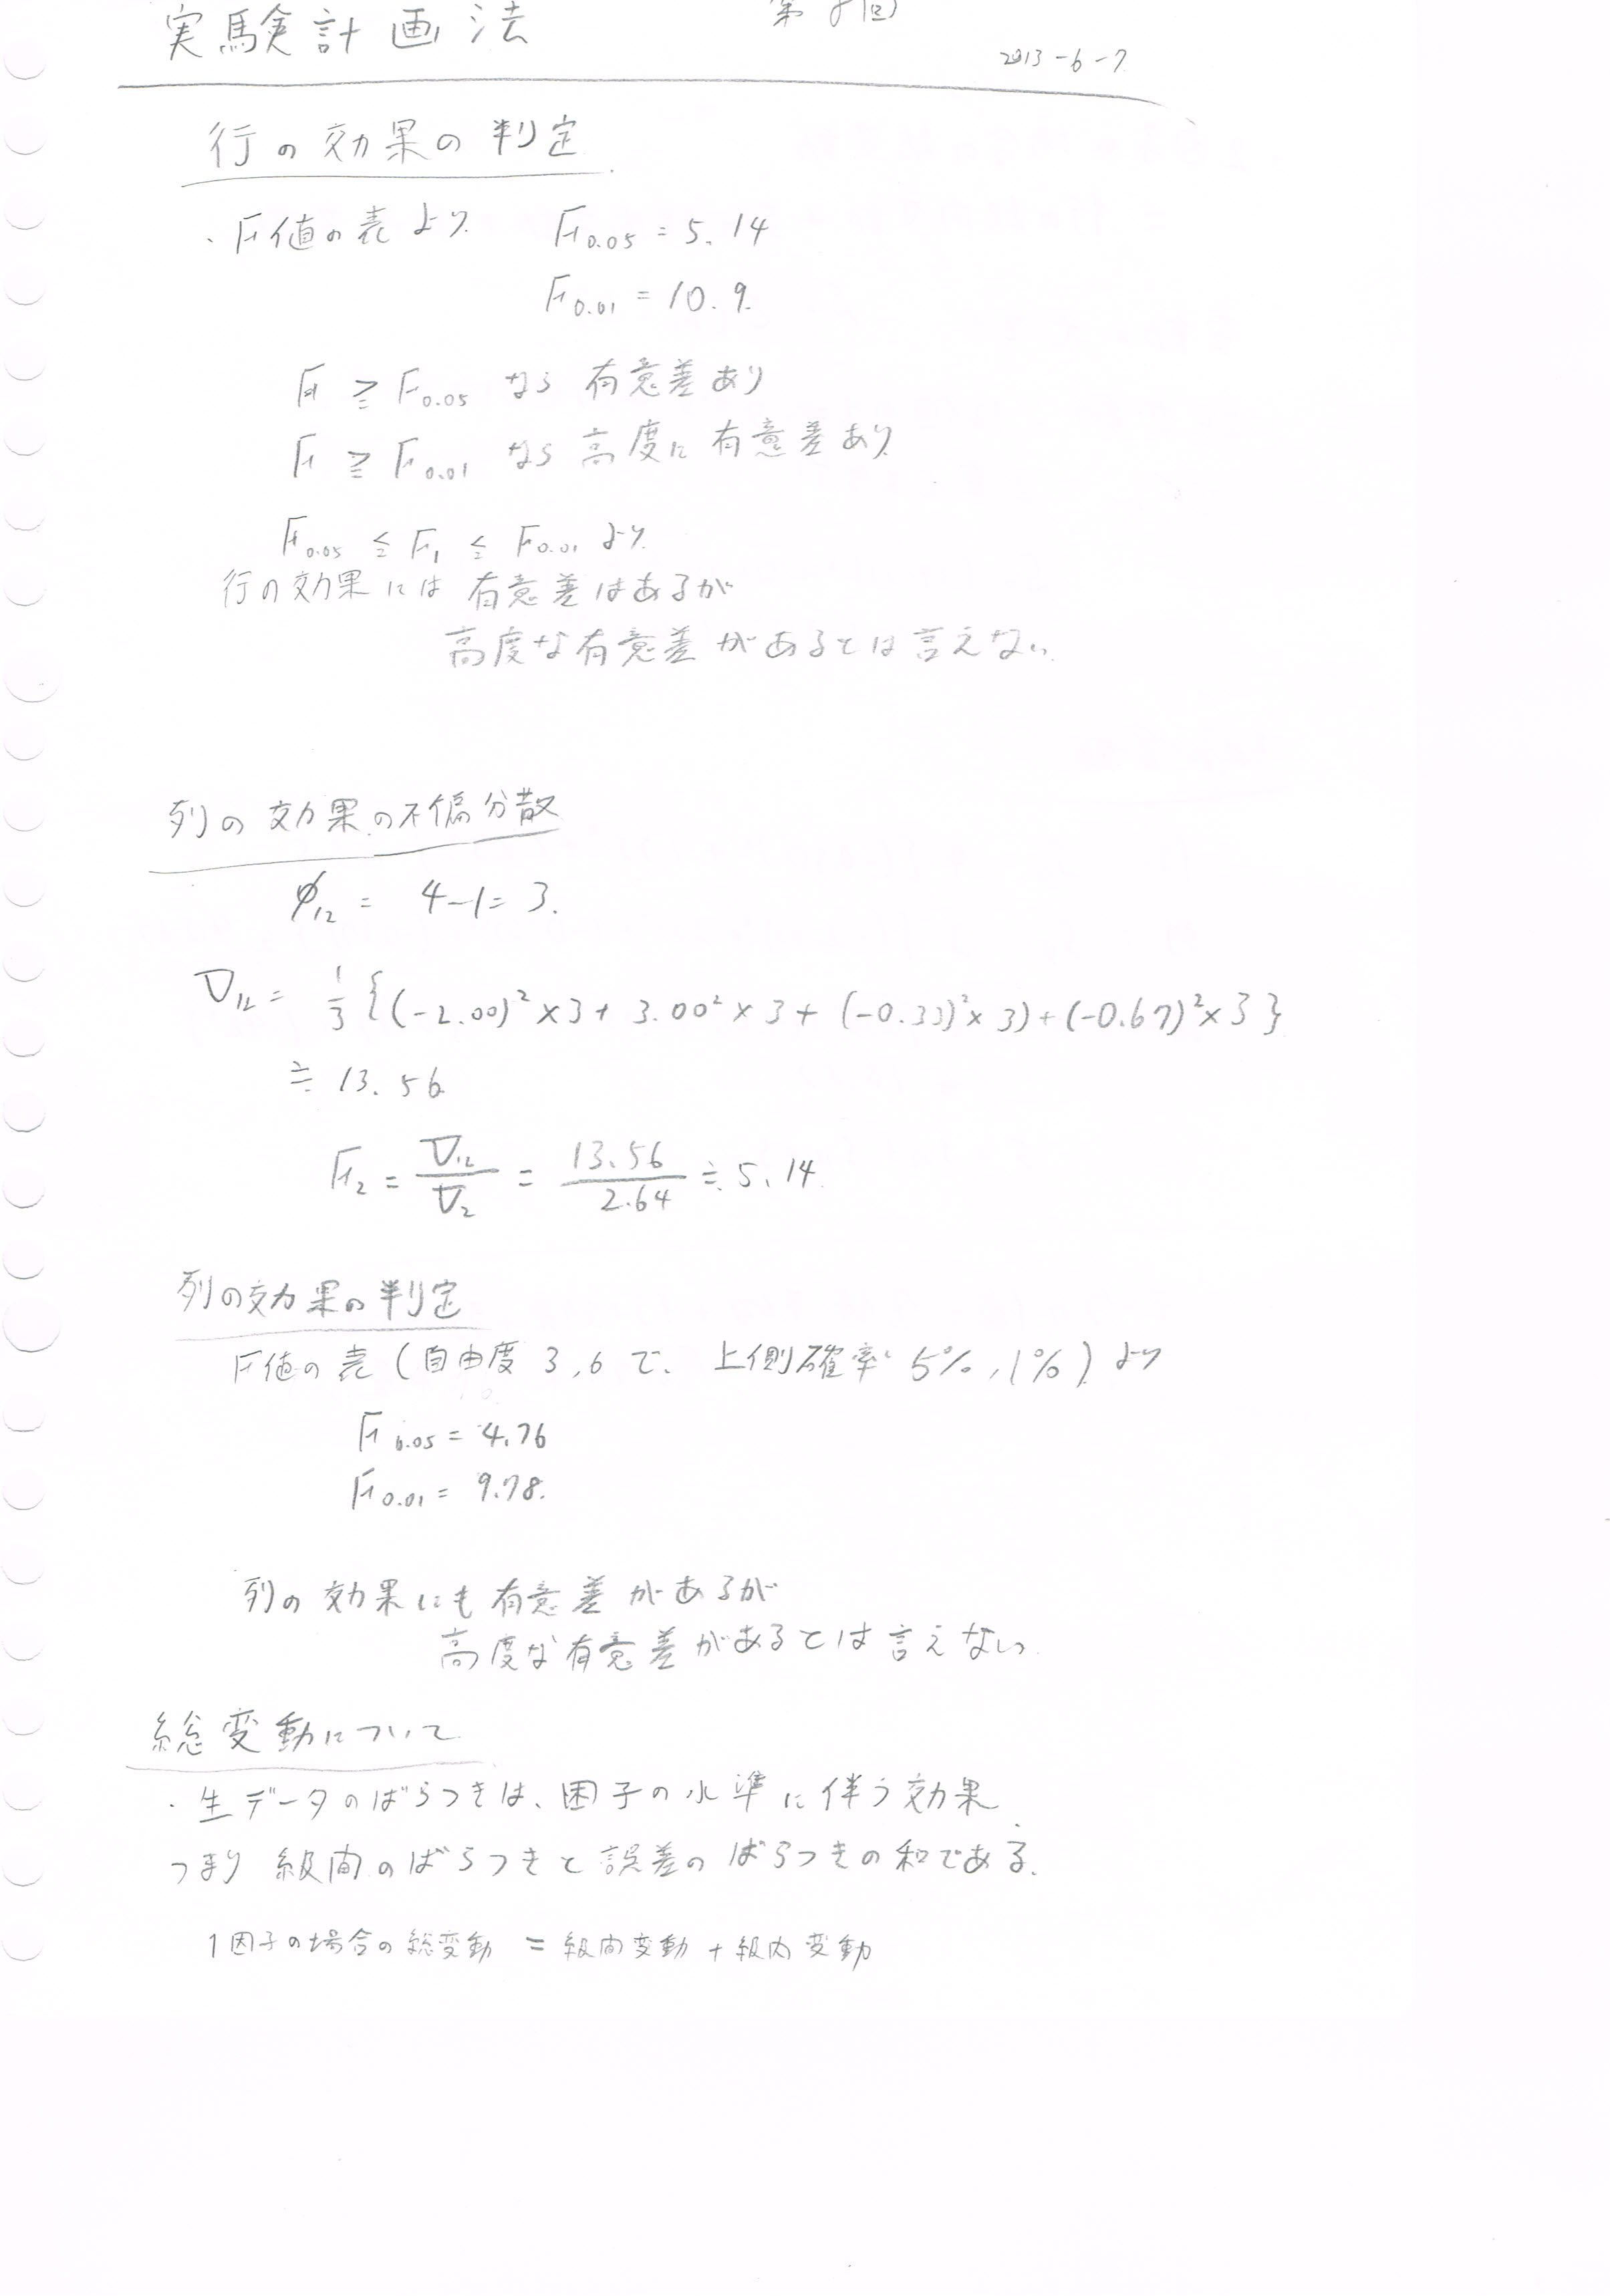 実験計画法 第8回
2013-6-7
行の効果の判定
・F値の表より F0.05 = 5.14
F0.01 = 10.9
F ≧ F0.05 なら 有意差あり
F ≧ F0.01 なら 高度に有意差あり
F0.05 ≦ F1 ≦ F0.01 より
行の効果には 有意差はあるが
高度な有意差があるとは言えない
列の効果の不偏分散
φ12 = 4-1= 3.
V12 = 1/3 {(-2.00)²×3+ 3.00²×3+ (-0.33)²×3)+(-0.67)²×3}
≒ 13.56
F2 = V12/V2 = 13.56/2.64 ≒ 5.14
列の効果の判定
F値の表 (自由度 3,6 で、上側確率 5%,1%) より
F0.05 = 4.76
F0.01 = 9.78.
列の効果にも有意差があるが
高度な有意差があるとは言えない
総変動について
・生データのばらつきは、因子の水準に伴う効果
つまり級間のばらつきと誤差のばらつきの和である.
1因子の場合の総変動 = 級間変動 + 級内変動